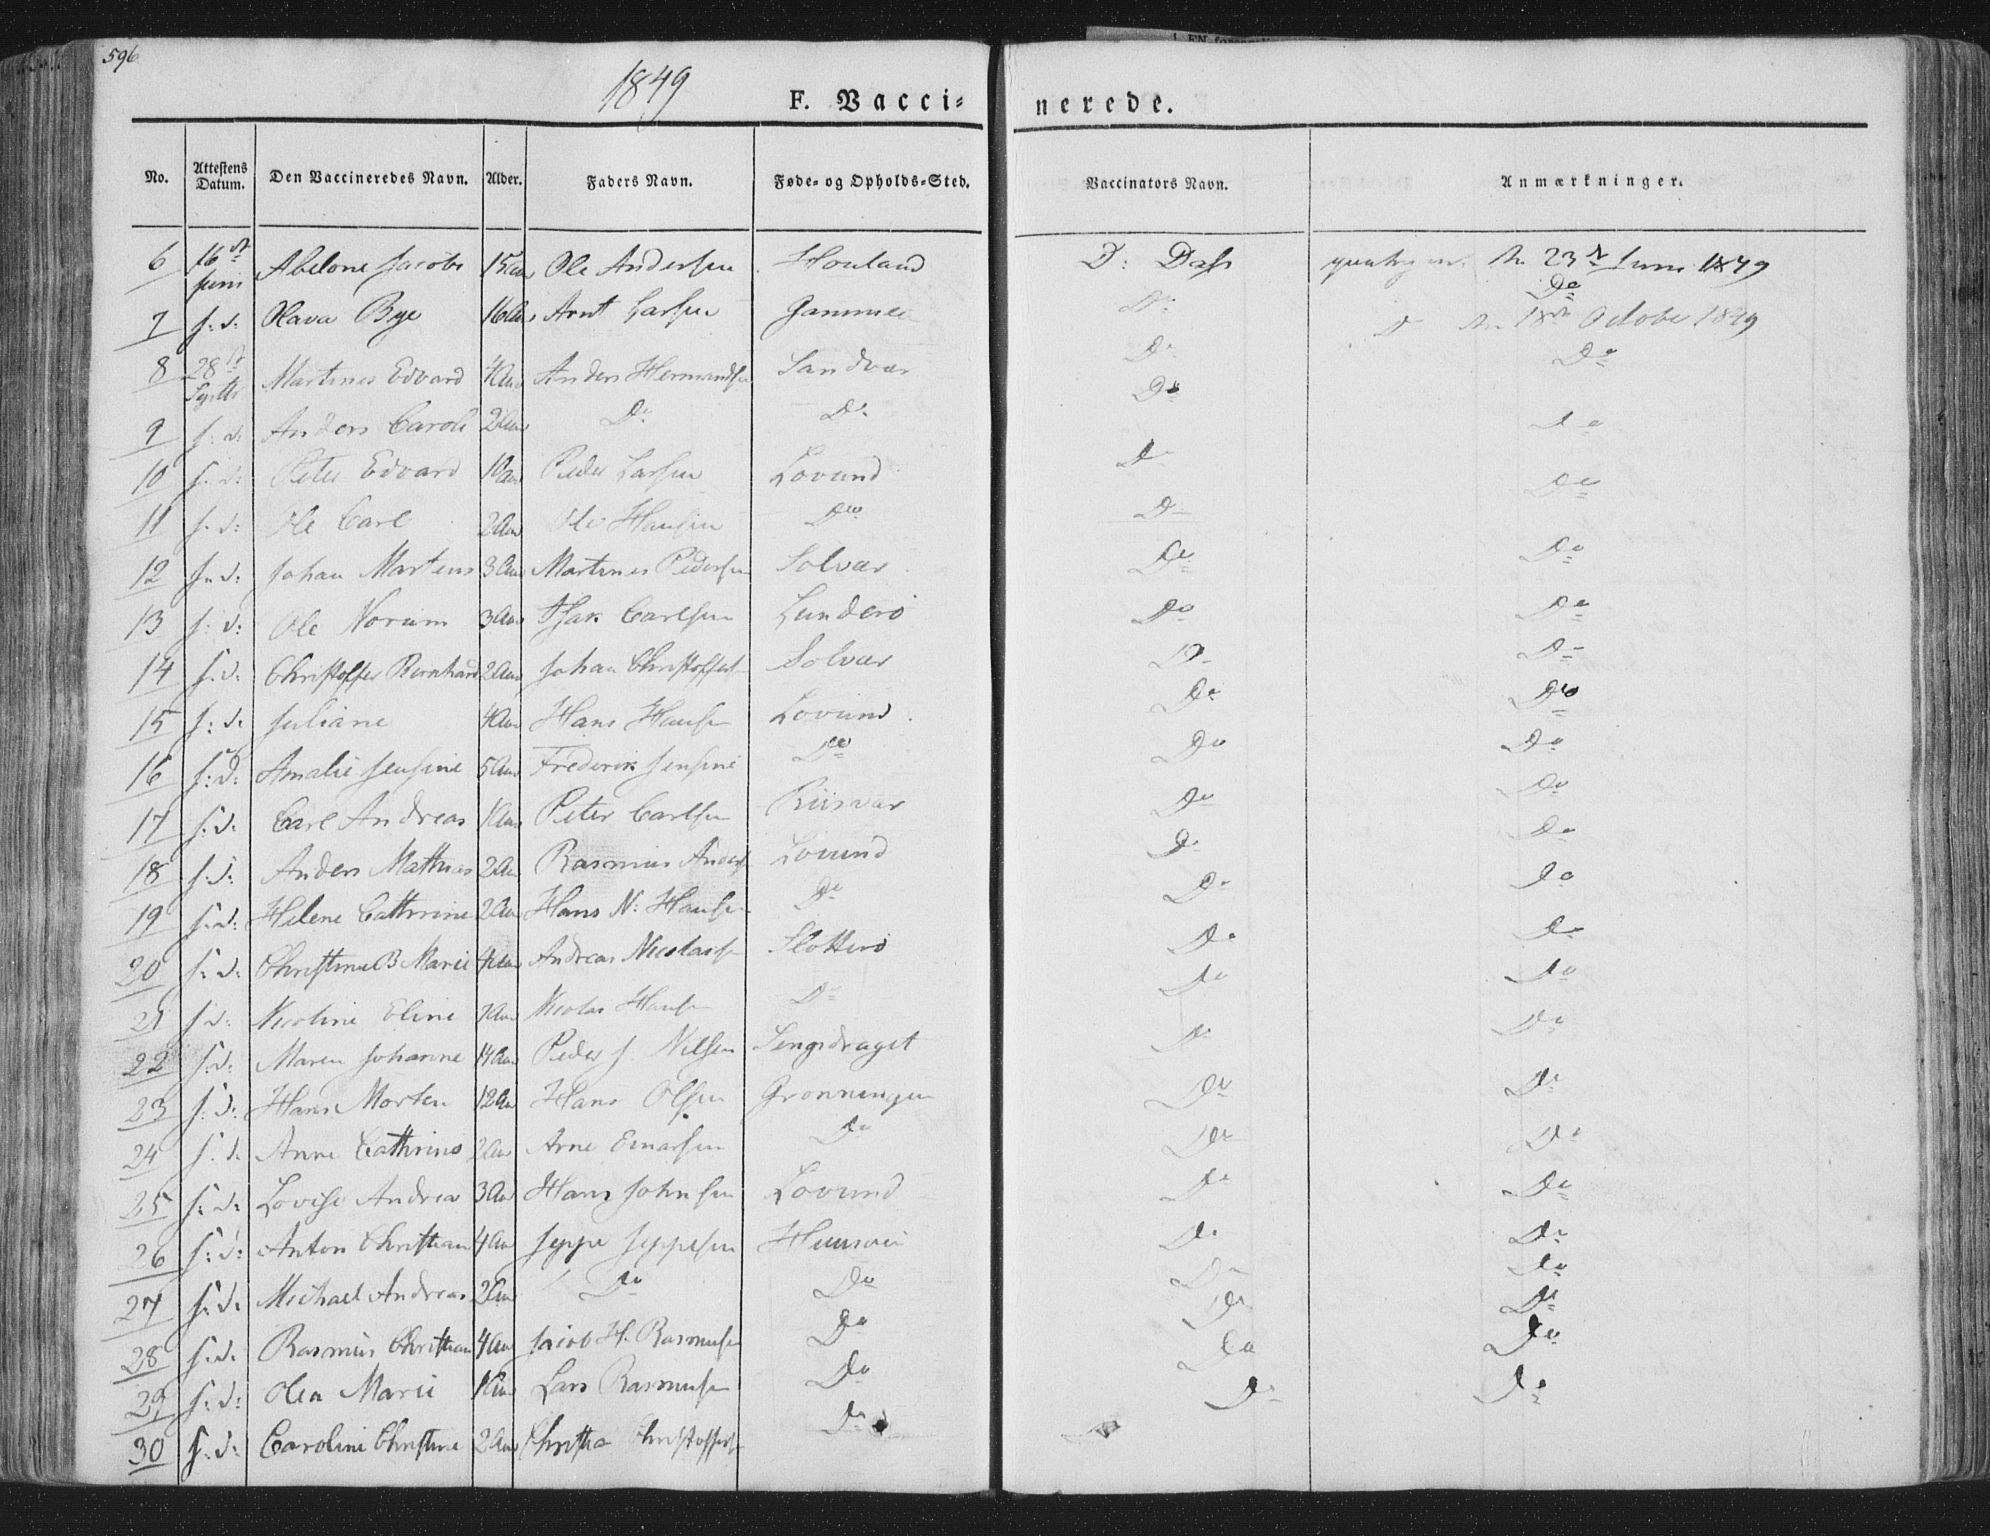 596
1849
F. Vacci=
nerede.
No. Attestens Datum. Den Vaccineredes Navn. Alder. Faders Navn. Føde- og Opholds-Sted. Vaccinators Navn. Anmærkninger.
6 16de Juni Abelone Jacobs 15 Aar Ole Andersen Houland D: Dass 23de Juni 1849
Do
7 s: d: Olava Bye 16 Aar Arnt Larsen Do 18de October 1849
8 28de Martines Edvard 4 Aar Anders Hermandsen Sandvær Do Do
9 s: d: Anders Caroli 2 Aar Do Do Do Do
10 s: d: Peter Edvard 10 Aar Peder Larsen Lovund Do Do
11 s: d: Ole Carl 2 Aar Ole Hansen Do Do
12 s: d: Johan Martens 3 Aar Martines Pedersen Solvær Do Do
13 s: d: Ole Norum 3 Aar Isak Carlsen Lunderö Do Do
14 s: d: Christoffer Bernhard 2 Aar Johan Christoffers Solvær Do Do
15 s: d: Juliane 4 Aar Hans Hansen Lovund Do Do
16 s: d: Amalie Jensine 5 Aar Frederik Do Do Do
17 s: d: Carl Andreas 1 Aar Peter Carlsen Riisvær Do Do
18 s: d: Anders Mathias 2 Aar Rasmus Anders Lovund Do Do
19 s: d: Helene Cathrine 2 Aar Hans N: Hansen Do Do Do
20 s: d: Christine B Marie 4 Aar Andreas Nicolaisen Slotterö Do Do
21 s: d: Nicoline Eline Nicolai Hansen Do Do Do
22 s: d: Maren Johanne 14 Aar Peder J. Nilsen Sengsdraget Do Do
23 s: d: Hans Morten 12 Aar Hans Olsen Gronningen Do Do
24 s: d: Anne Cathrine 2 Aar Arne Einarsen Do Do Do
25 s: d: Lovise Andrea 3 Aar Hans Johnsen Lovund Do Do
26 s: d: Anton Christian 4 Aar Jeppe Jeppesen Do Do
27 s: d: Michael Andreas 2 Aar Do Do Do Do
28 s: d: Rasmus Christian 4 Aar Jacob H. Rasmusen Do Do Do
29 s: d: Olea Marie 1 Aar Lars Rasmusen Do Do Do
30 s: d: Caroline Christine 2 Aar Christian Christoffers Do Do Do